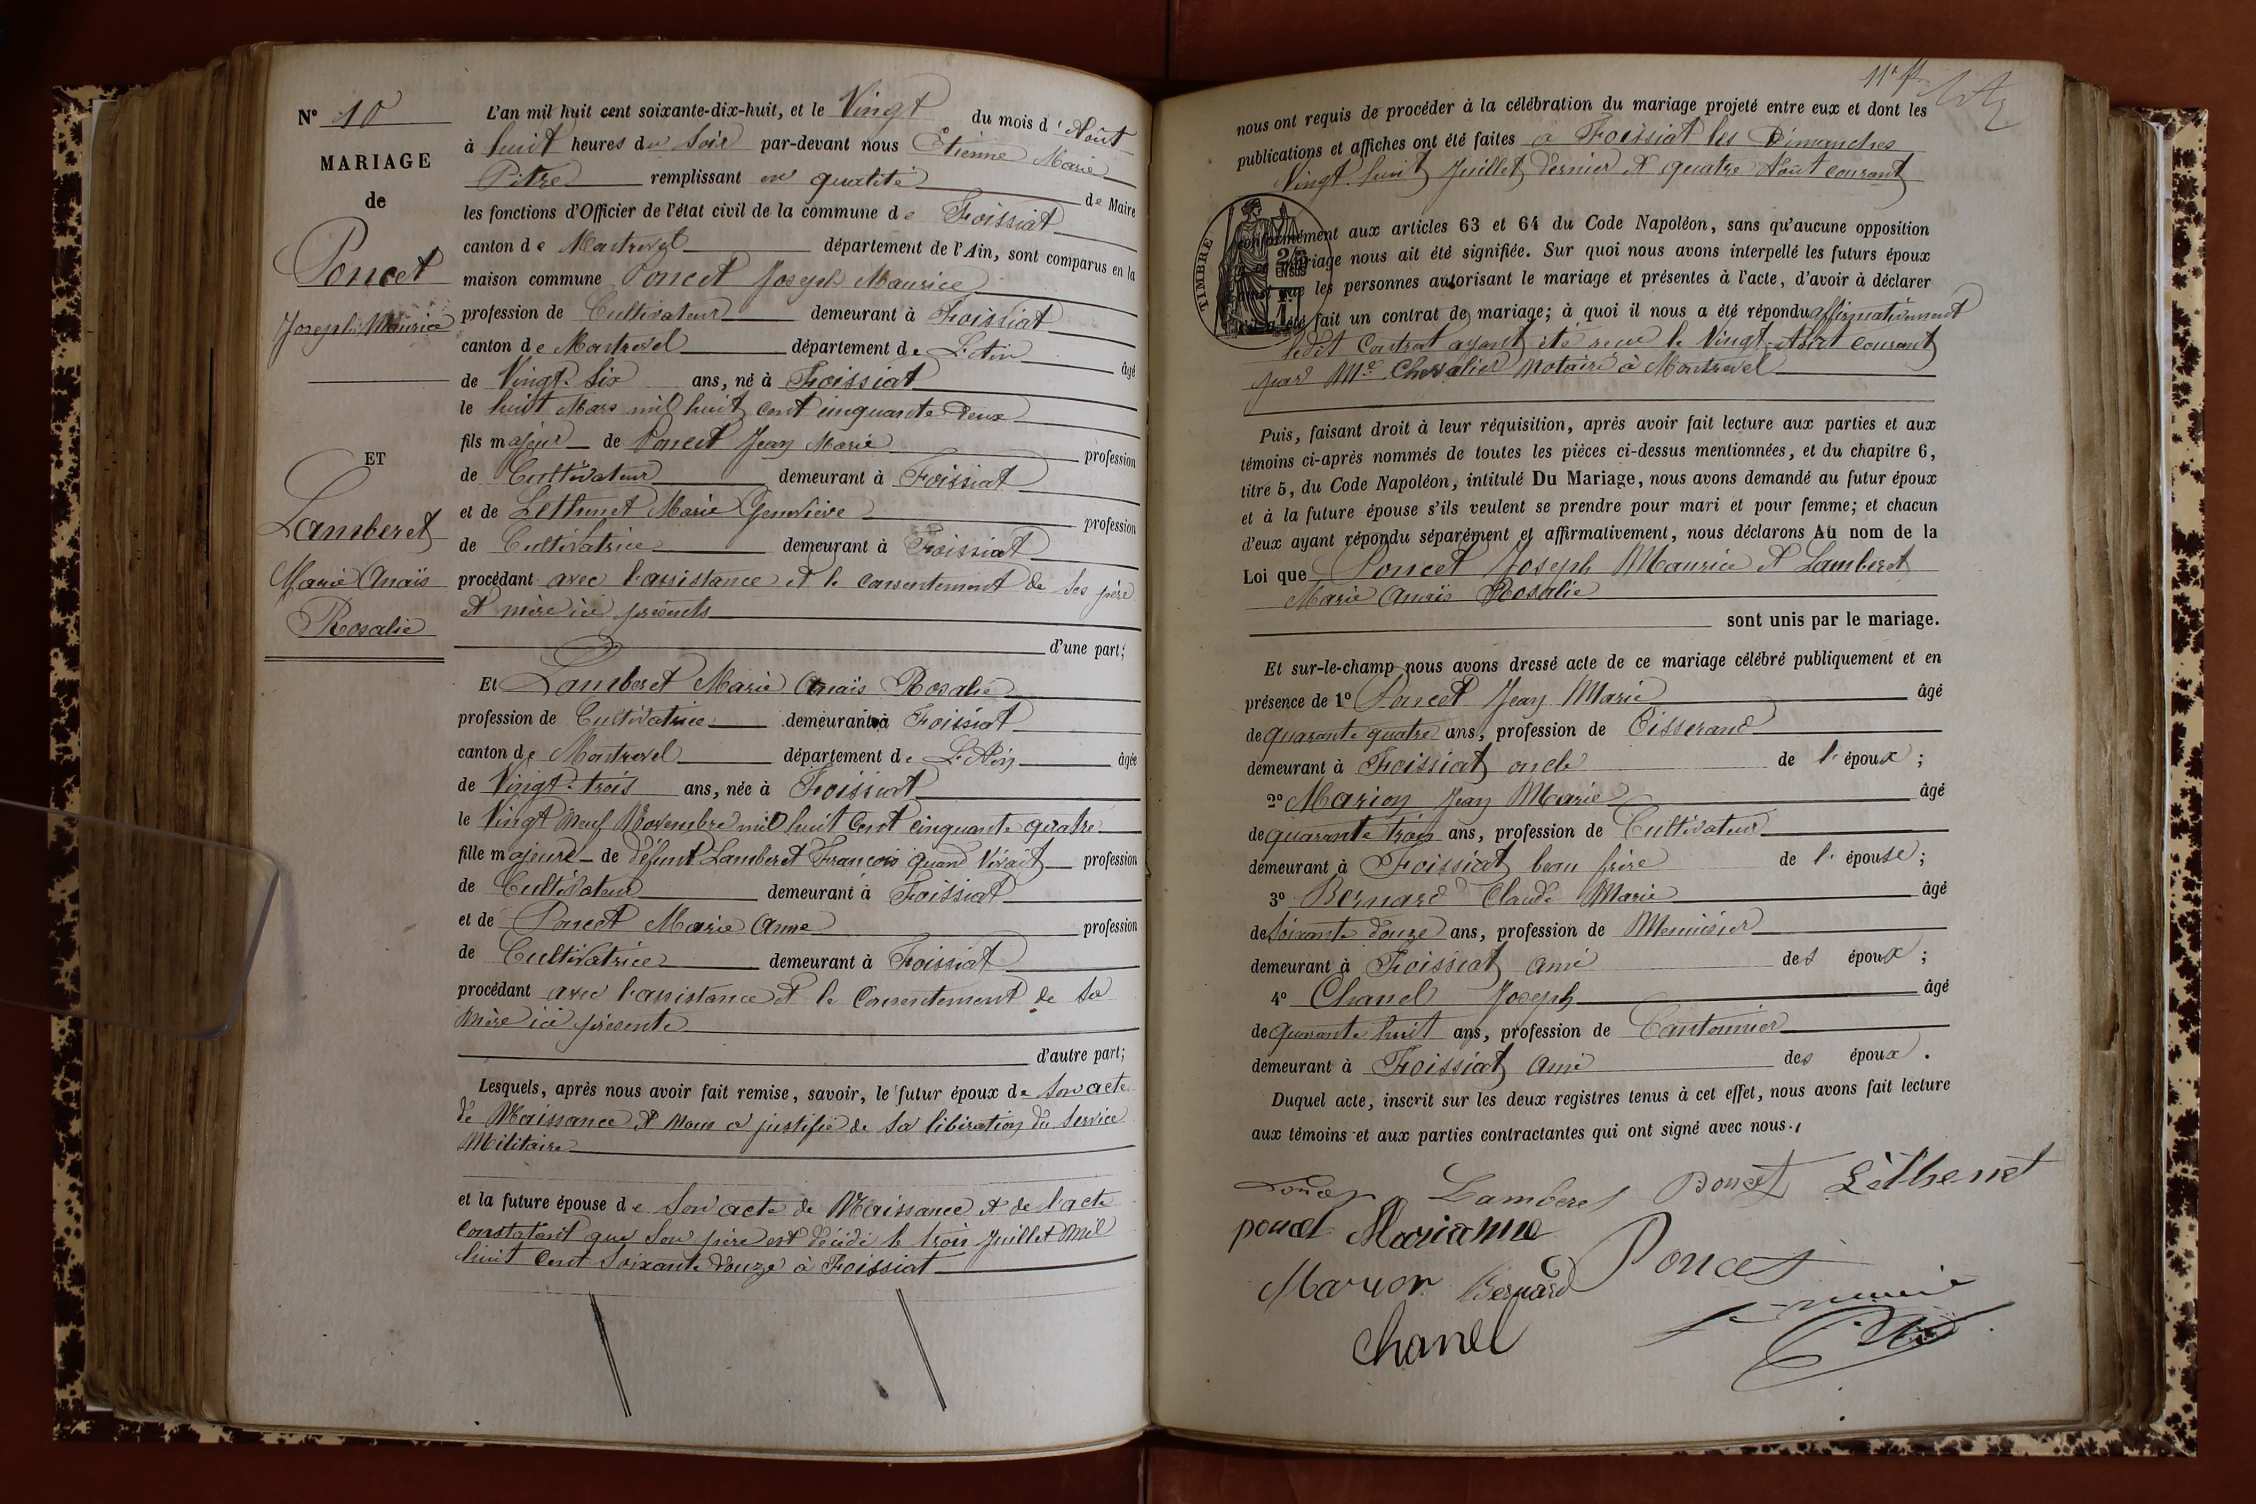 N° 10
MARIAGE
de
Poncet
Joseph Maurice
ET
Lamberet
Marie Anaïs
Rosalie
L'an mil huit cent soixante-dix-huit, et le Vingt du mois d'Août
à huit heures du Soir par-devant nous Etienne Marie
Pitre remplissant en qualité de Maire
les fonctions d'Officier de l'état civil de la commune de Foissiat
canton de Montrevel département de l'Ain, sont comparus en la
maison commune Poncet Joseph Maurice
profession de Cultivateur demeurant à Foissiat
canton de Montrevel département de L'Ain âgé
de Vingt-Six ans, né à Foissiat
le huit Mars mil huit cent cinquante deux
fils majeur de Poncet Jean Marie profession
de Cultivateur demeurant à Foissiat
et de Lethenet Marie Geneviève profession
de Cultivatrice demeurant à Foissiat
procédant avec l'assistance et le consentement de ses père
et mère ici présents
d'une part;
Et Lamberet Marie Anaïs Rosalie
profession de Cultivatrice demeurant à Foissiat
canton de Montrevel département de L'Ain âgée
de Vingt-trois ans, née à Foissiat
le Vingt Neuf Novembre mil huit Cent cinquante quatre
fille majeure de défunt Lamberet François quand Vivait profession
de Cultivateur demeurant à Foissiat
et de Poncet Marie Anne profession
de Cultivatrice demeurant à Foissiat
procédant avec l'assistance et le Consentement de Sa
Mère ici présente
d'autre part;
Lesquels, après nous avoir fait remise, savoir, le futur époux de Son acte
de Naissance et Nous a justifié de Sa libération du Service
Militaire
et la future épouse de Son acte de Naissance et de l'acte
constatant que Son père est décédé le trois Juillet Mil
huit Cent Soixante douze à Foissiat
nous ont requis de procéder à la célébration du mariage projeté entre eux et dont les
publications et affiches ont été faites à Foissiat les Dimanches
Vingt-huit Juillet dernier et quatre Août courant
TIMBRE
25
CENT
conformément aux articles 63 et 64 du Code Napoléon, sans qu'aucune opposition
mariage nous ait été signifiée. Sur quoi nous avons interpellé les futurs époux
ainsi que les personnes autorisant le mariage et présentes à l'acte, d'avoir à déclarer
été fait un contrat de mariage; à quoi il nous a été répondu affirmativement
ledit Contrat ayant été reçu le Vingt Août courant
par Me Chevalier Notaire à Montrevel
Puis, faisant droit à leur réquisition, après avoir fait lecture aux parties et aux
témoins ci-après nommés de toutes les pièces ci-dessus mentionnées, et du chapitre 6,
titre 5, du Code Napoléon, intitulé Du Mariage, nous avons demandé au futur époux
et à la future épouse s'ils veulent se prendre pour mari et pour femme; et chacun
d'eux ayant répondu séparément et affirmativement, nous déclarons Au nom de la
Loi que Poncet Joseph Maurice et Lamberet
Marie Anaïs Rosalie
sont unis par le mariage.
Et sur-le-champ nous avons dressé acte de ce mariage célébré publiquement et en
présence de 1° Poncet Jean Marie âgé
de quarante quatre ans, profession de Tisserand
demeurant à Foissiat oncle de l'époux;
2° Marion Jean Marie âgé
de quarante trois ans, profession de Cultivateur
demeurant à Foissiat beau frère de l'épouse;
3° Bernard Claude Marie âgé
de Soixante douze ans, profession de Menuisier
demeurant à Foissiat ami des époux;
4° Chanel Joseph âgé
de quarante huit ans, profession de Cantonnier
demeurant à Foissiat ami des époux.
Duquel acte, inscrit sur les deux registres tenus à cet effet, nous avons fait lecture
aux témoins et aux parties contractantes qui ont signé avec nous.
Poncet Lamberet Poncet Léthenet
poncet Marianne
Marion Bernard Poncet
Chanel